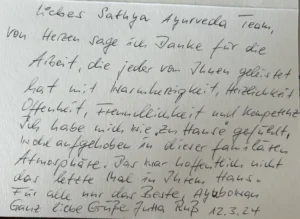 Liebes Sathya Ayurveda Team,
von Herzen sage ich Danke für die
Arbeit, die jeder von Ihnen geleistet
hat mit Warmherzigkeit, Herzlichkeit
Offenheit, Freundlichkeit und Kompetenz
Ich habe mich wie zu Hause gefühlt,
wohl aufgehoben in dieser familiären
Atmosphäre. Das war hoffentlich nicht
das letzte Mal in Ihrem Haus.
Für alle nur das Beste, Ayubowan
Ganz liebe Grüße Jutta Ruß 12.3.24